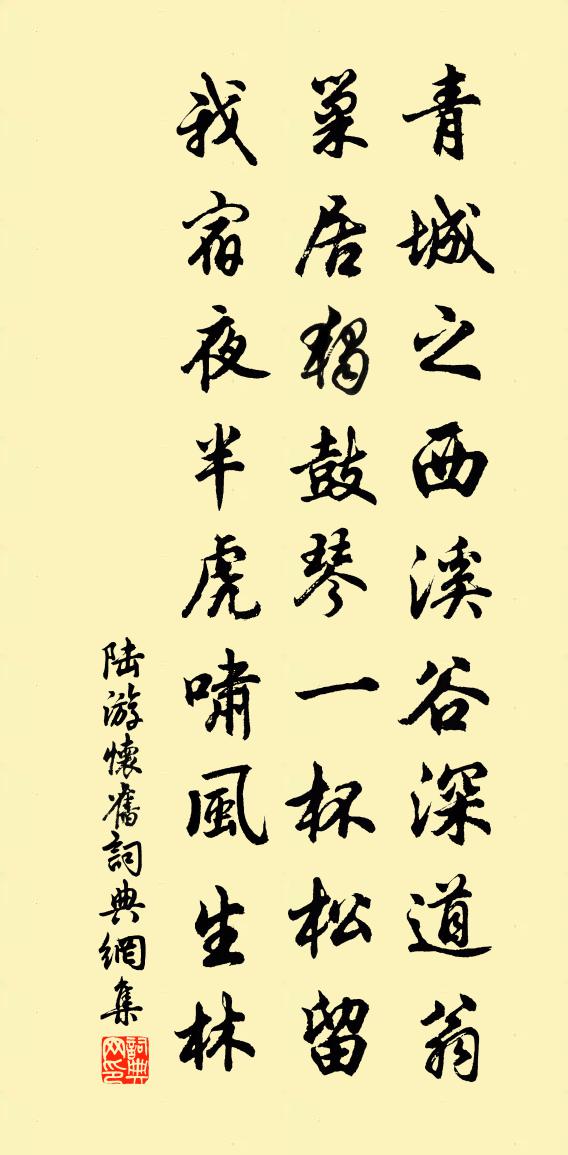 青城之西溪谷深道翁
巢居獨鼓琴一杯松留
我宿夜半虎嘯風生林
陸游懷舊詞典網集
詞典网印